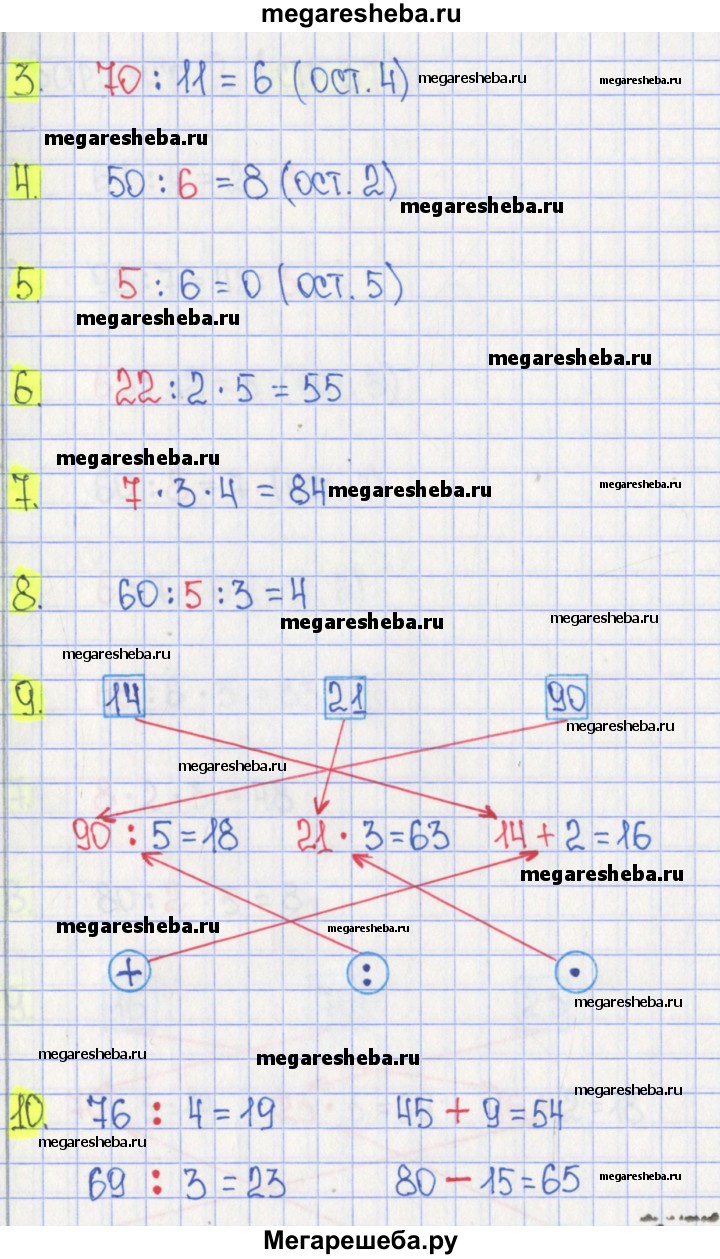 megaresheba.ru
3. 70 : 11 = 6 (ост. 4) megaresheba.ru megaresheba.ru
megaresheba.ru
4. 50 : 6 = 8 (ост. 2)
megaresheba.ru
5. 5 : 6 = 0 (ост. 5)
megaresheba.ru
megaresheba.ru
6. 22 : 2 · 5 = 55
megaresheba.ru
7. 7 · 3 · 4 = 84 megaresheba.ru megaresheba.ru
8. 60 : 5 : 3 = 4
megaresheba.ru megaresheba.ru
megaresheba.ru
9. 14 21 90
megaresheba.ru
megaresheba.ru
90 : 5 = 18 21 · 3 = 63 14 + 2 = 16
megaresheba.ru
megaresheba.ru megaresheba.ru
+ : ·
megaresheba.ru
megaresheba.ru megaresheba.ru
megaresheba.ru
10. 76 : 4 = 19 45 + 9 = 54
megaresheba.ru
69 : 3 = 23 80 - 15 = 65 megaresheba.ru
Мегарешеба.ру